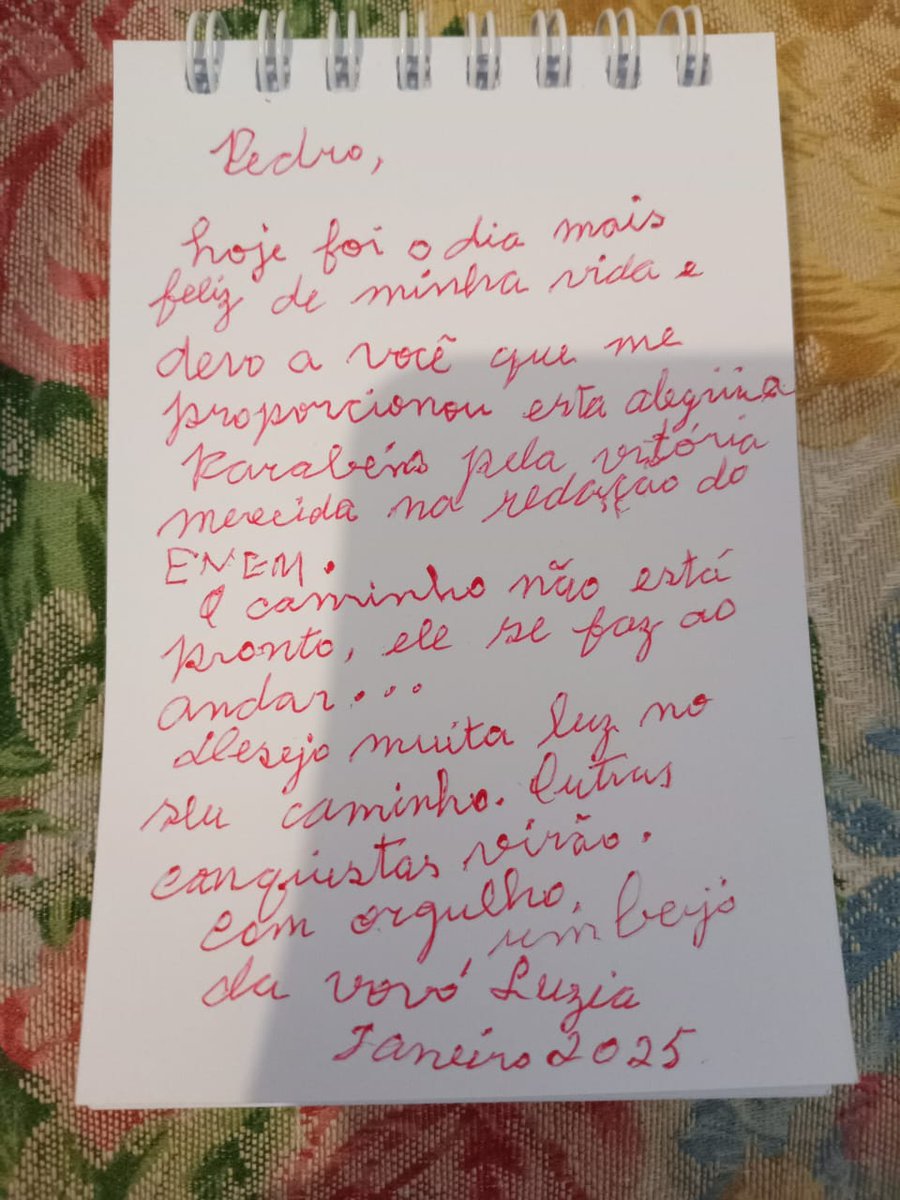 Pedro,
hoje foi o dia mais
feliz de minha vida e
devo a você que me
proporcionou esta alegria
Parabéns pela vitória
merecida na redação do
ENEM.
O caminho não está
pronto, ele se faz ao
andar...
Desejo muita luz no
seu caminho. Outras
conquistas virão.
Com orgulho,
um beijo
da vovó Luzia
Janeiro 2025